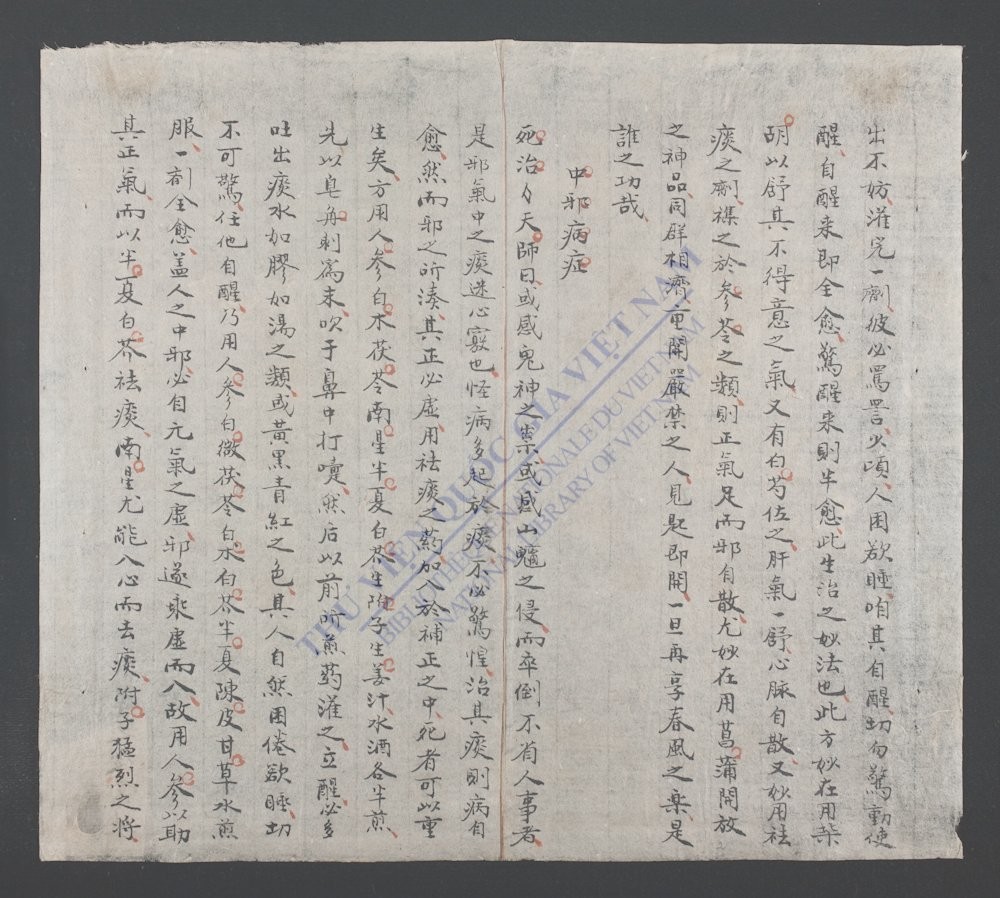 出不妨灌完一劑彼必罵詈少頃人困欲睡咱其自醒切勿驚動使
醒自醒来即全愈驚醒来則半愈此生治之妙法也此方妙在用柴
胡以舒其不得意之氣又有白芍佐之肝氣一舒心脉自散又妙用祛
痰之劑襍之於參苓之類則正氣足而邪自散尤妙在用菖蒲開放
之神品同群相濟重開嚴禁之人見匙即開一旦再享春風之樂是
誰之功哉
中邪病症
死治夕天師曰或感鬼神之祟或感山魈之侵而卒倒不省人事者
是邪氣中之痰迷心竅也怪病多起於痰不必驚惶治其痰則病自
愈然而邪之所湊其正必虚用祛痰之药加入於補正之中死者可以重
生矣方用人參白朮茯苓南星半夏白芥生附子生姜汁水酒各半煎
先以皂角刺為末吹于鼻中打嚏然后以前所煎药灌之立醒必多
吐出痰水如膠如湯之類或黃黑青紅之色其人自然困倦欲睡切
不可驚任他自醒乃用人參白微茯苓白朮白芥半夏陳皮甘草水煎
服一剤全愈盖人之中邪必自元氣之虚邪遂乘虚而入故用人參以助
其正氣而以半夏白芥祛痰南星尤能入心而去痰附子猛烈之將
THƯ VIỆN QUỐC GIA VIỆT NAM
BIBLIOTHÈQUE NATIONALE DU VIETNAM
NATIONAL LIBRARY OF VIETNAM